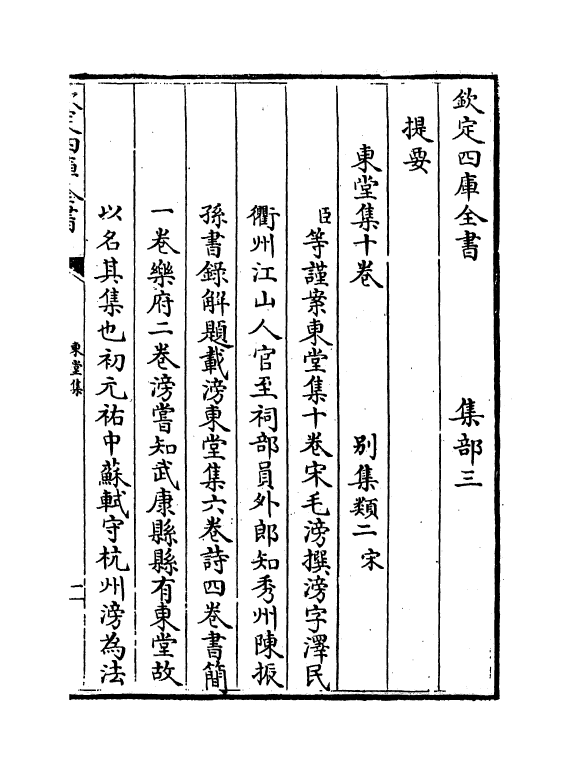 欽定四庫全書　集部三
提要
東堂集十卷　别集類二宋
臣等謹案東堂集十卷宋毛滂撰滂字澤民
衢州江山人官至祠部員外郎知秀州陳振
孫書錄解題載滂東堂集六卷詩四卷書簡
一卷樂府二卷滂嘗知武康縣縣有東堂故
以名其集也初元祐中蘇軾守杭州滂為法
東堂集